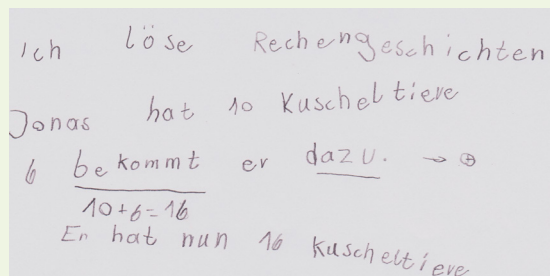 Ich löse Rechengeschichten
Jonas hat 10 Kuscheltiere
6 bekommt er dazu. → ⊕
10+6=16
Er hat nun 16 Kuscheltiere